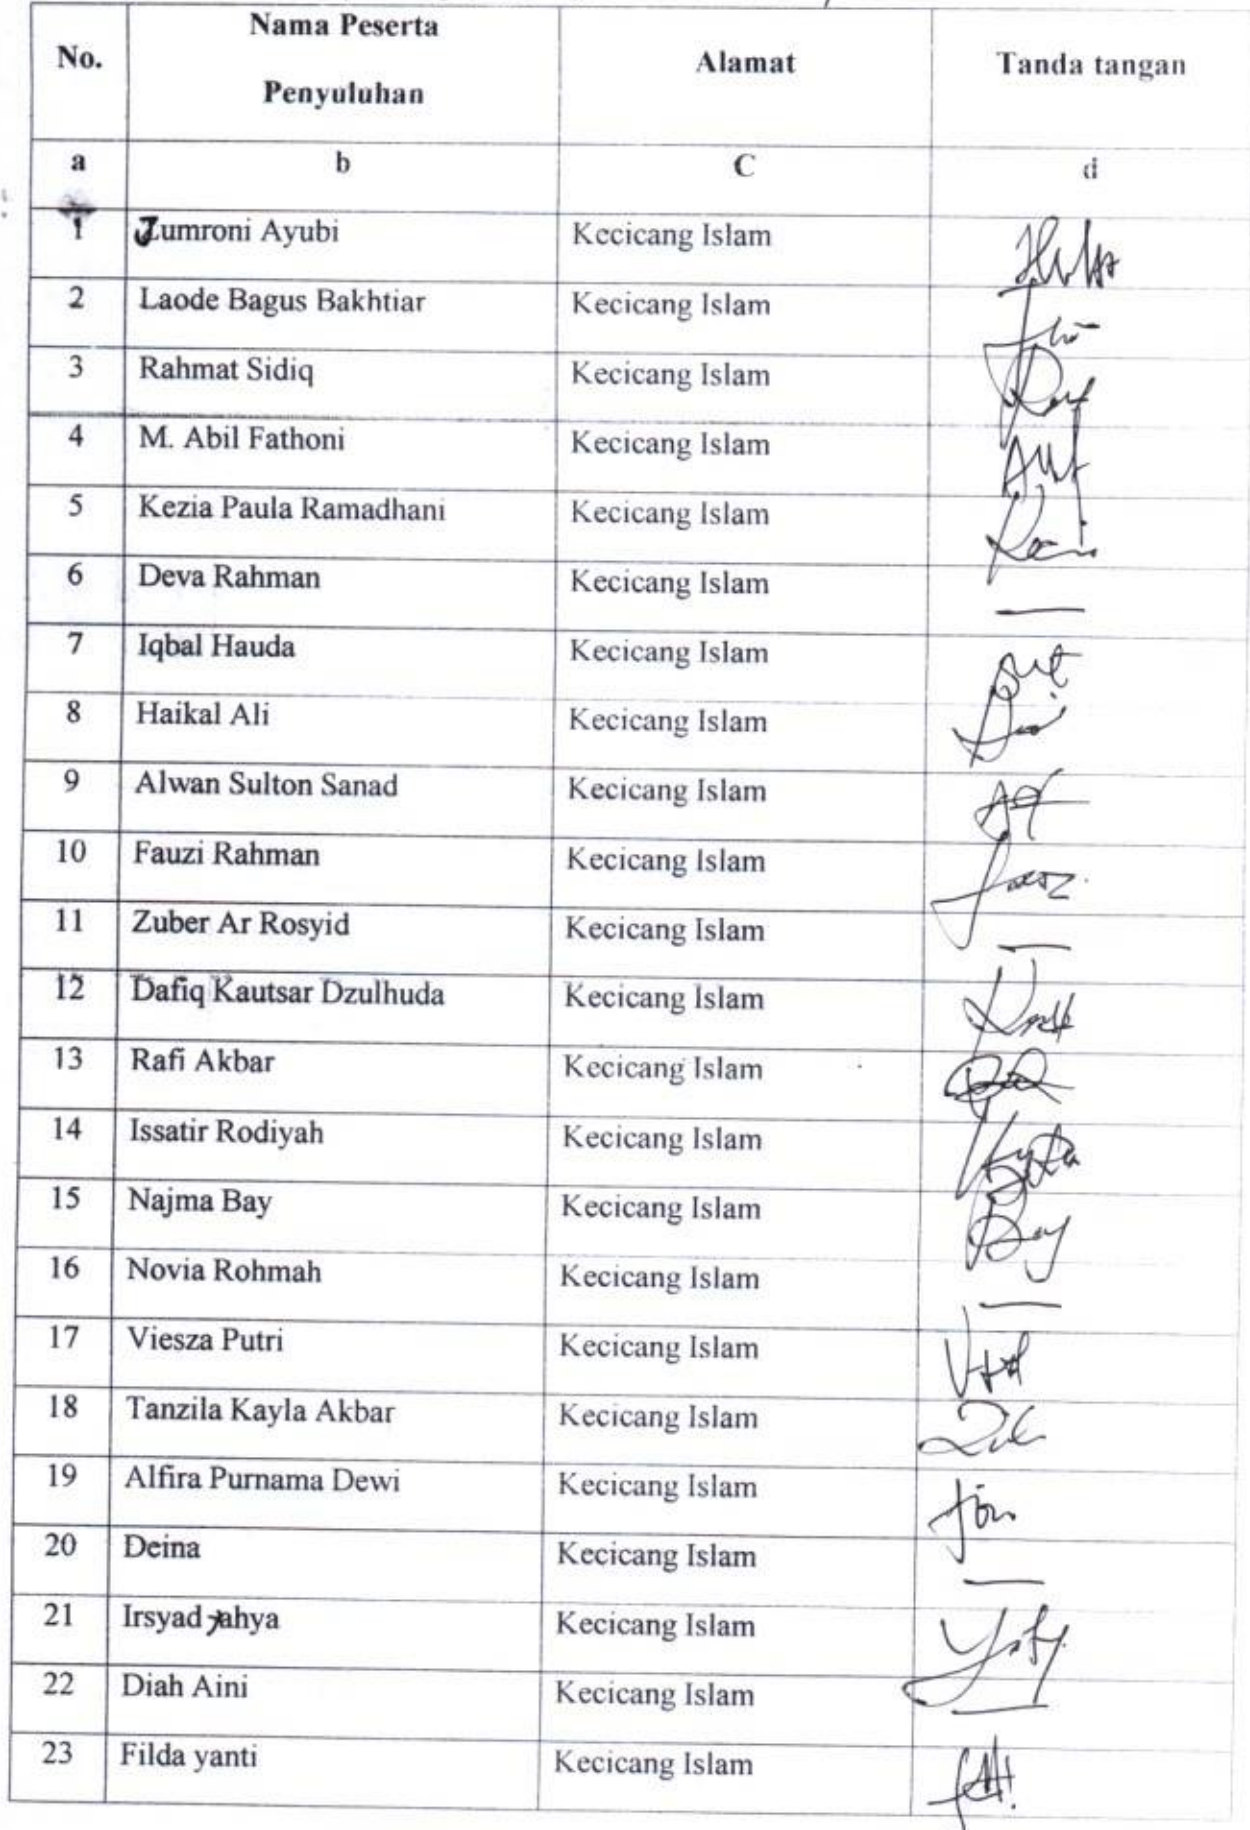 No. Nama Peserta Penyuluhan Alamat Tanda tangan
a b C d
1 Jumroni Ayubi Kecicang Islam
2 Laode Bagus Bakhtiar Kecicang Islam
3 Rahmat Sidiq Kecicang Islam
4 M. Abil Fathoni Kecicang Islam
5 Kezia Paula Ramadhani Kecicang Islam
6 Deva Rahman Kecicang Islam —
7 Iqbal Hauda Kecicang Islam
8 Haikal Ali Kecicang Islam
9 Alwan Sulton Sanad Kecicang Islam
10 Fauzi Rahman Kecicang Islam
11 Zuber Ar Rosyid Kecicang Islam —
12 Dafiq Kautsar Dzulhuda Kecicang Islam
13 Rafi Akbar Kecicang Islam
14 Issatir Rodiyah Kecicang Islam
15 Najma Bay Kecicang Islam
16 Novia Rohmah Kecicang Islam —
17 Viesza Putri Kecicang Islam
18 Tanzila Kayla Akbar Kecicang Islam
19 Alfira Purnama Dewi Kecicang Islam
20 Deina Kecicang Islam —
21 Irsyad yahya Kecicang Islam
22 Diah Aini Kecicang Islam —
23 Filda yanti Kecicang Islam